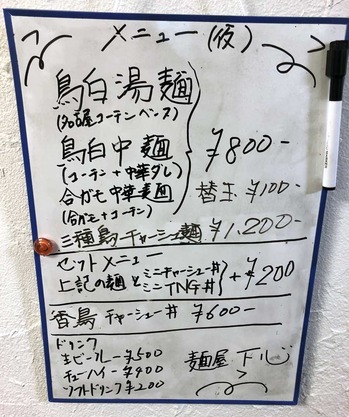 メニュー(仮)
鳥白湯麺
(名古屋コーチンベース)
鳥白中麺
(コーチン+中華ダレ)
¥800-
合ガモ中華麺
(合ガモ+コーチン)
替玉 ¥100-
三種鳥チャーシュー麺 ¥1,200-
セットメニュー
上記の麺と ミニチャーシュー丼
ミニTNG丼
+¥200
香鳥チャーシュー丼 ¥600-
ドリンク
生ビール ー¥500
チューハイー¥400
ソフトドリンク¥200
麺屋 下心